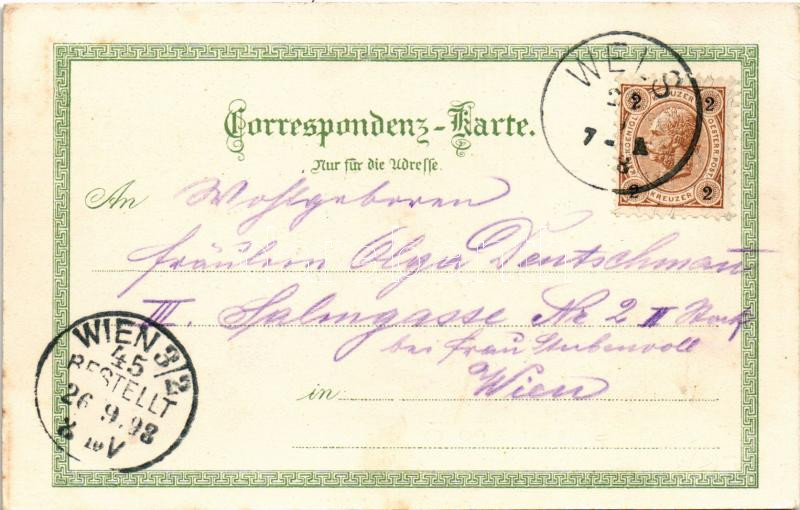 WELS
7 - A
8
2 KREUZER 2
KAIS. KOENIGL. OESTERR. POST
2 KREUZER 2
Correspondenz-Karte.
Nur für die Adresse.
An Wohlgeboren
Fräulein Olga Deutschmann
III. Salmgasse Nr 2 II Stock
bei Frau
in Wien
WIEN 3/2
45
BESTELLT
26.9.98
V